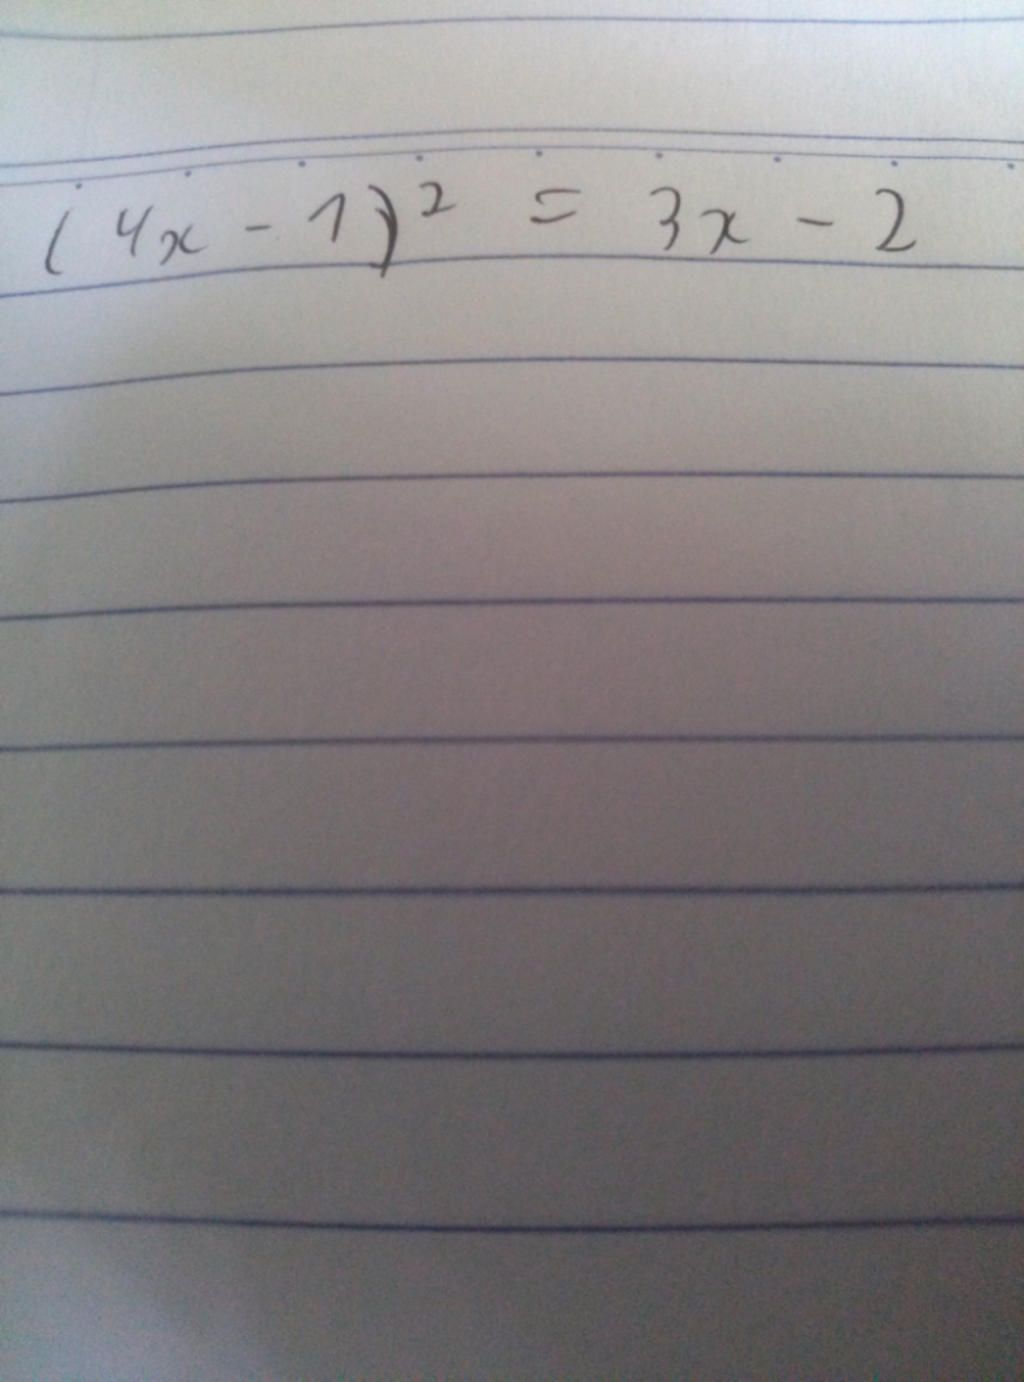 (4x - 1)² = 3x - 2